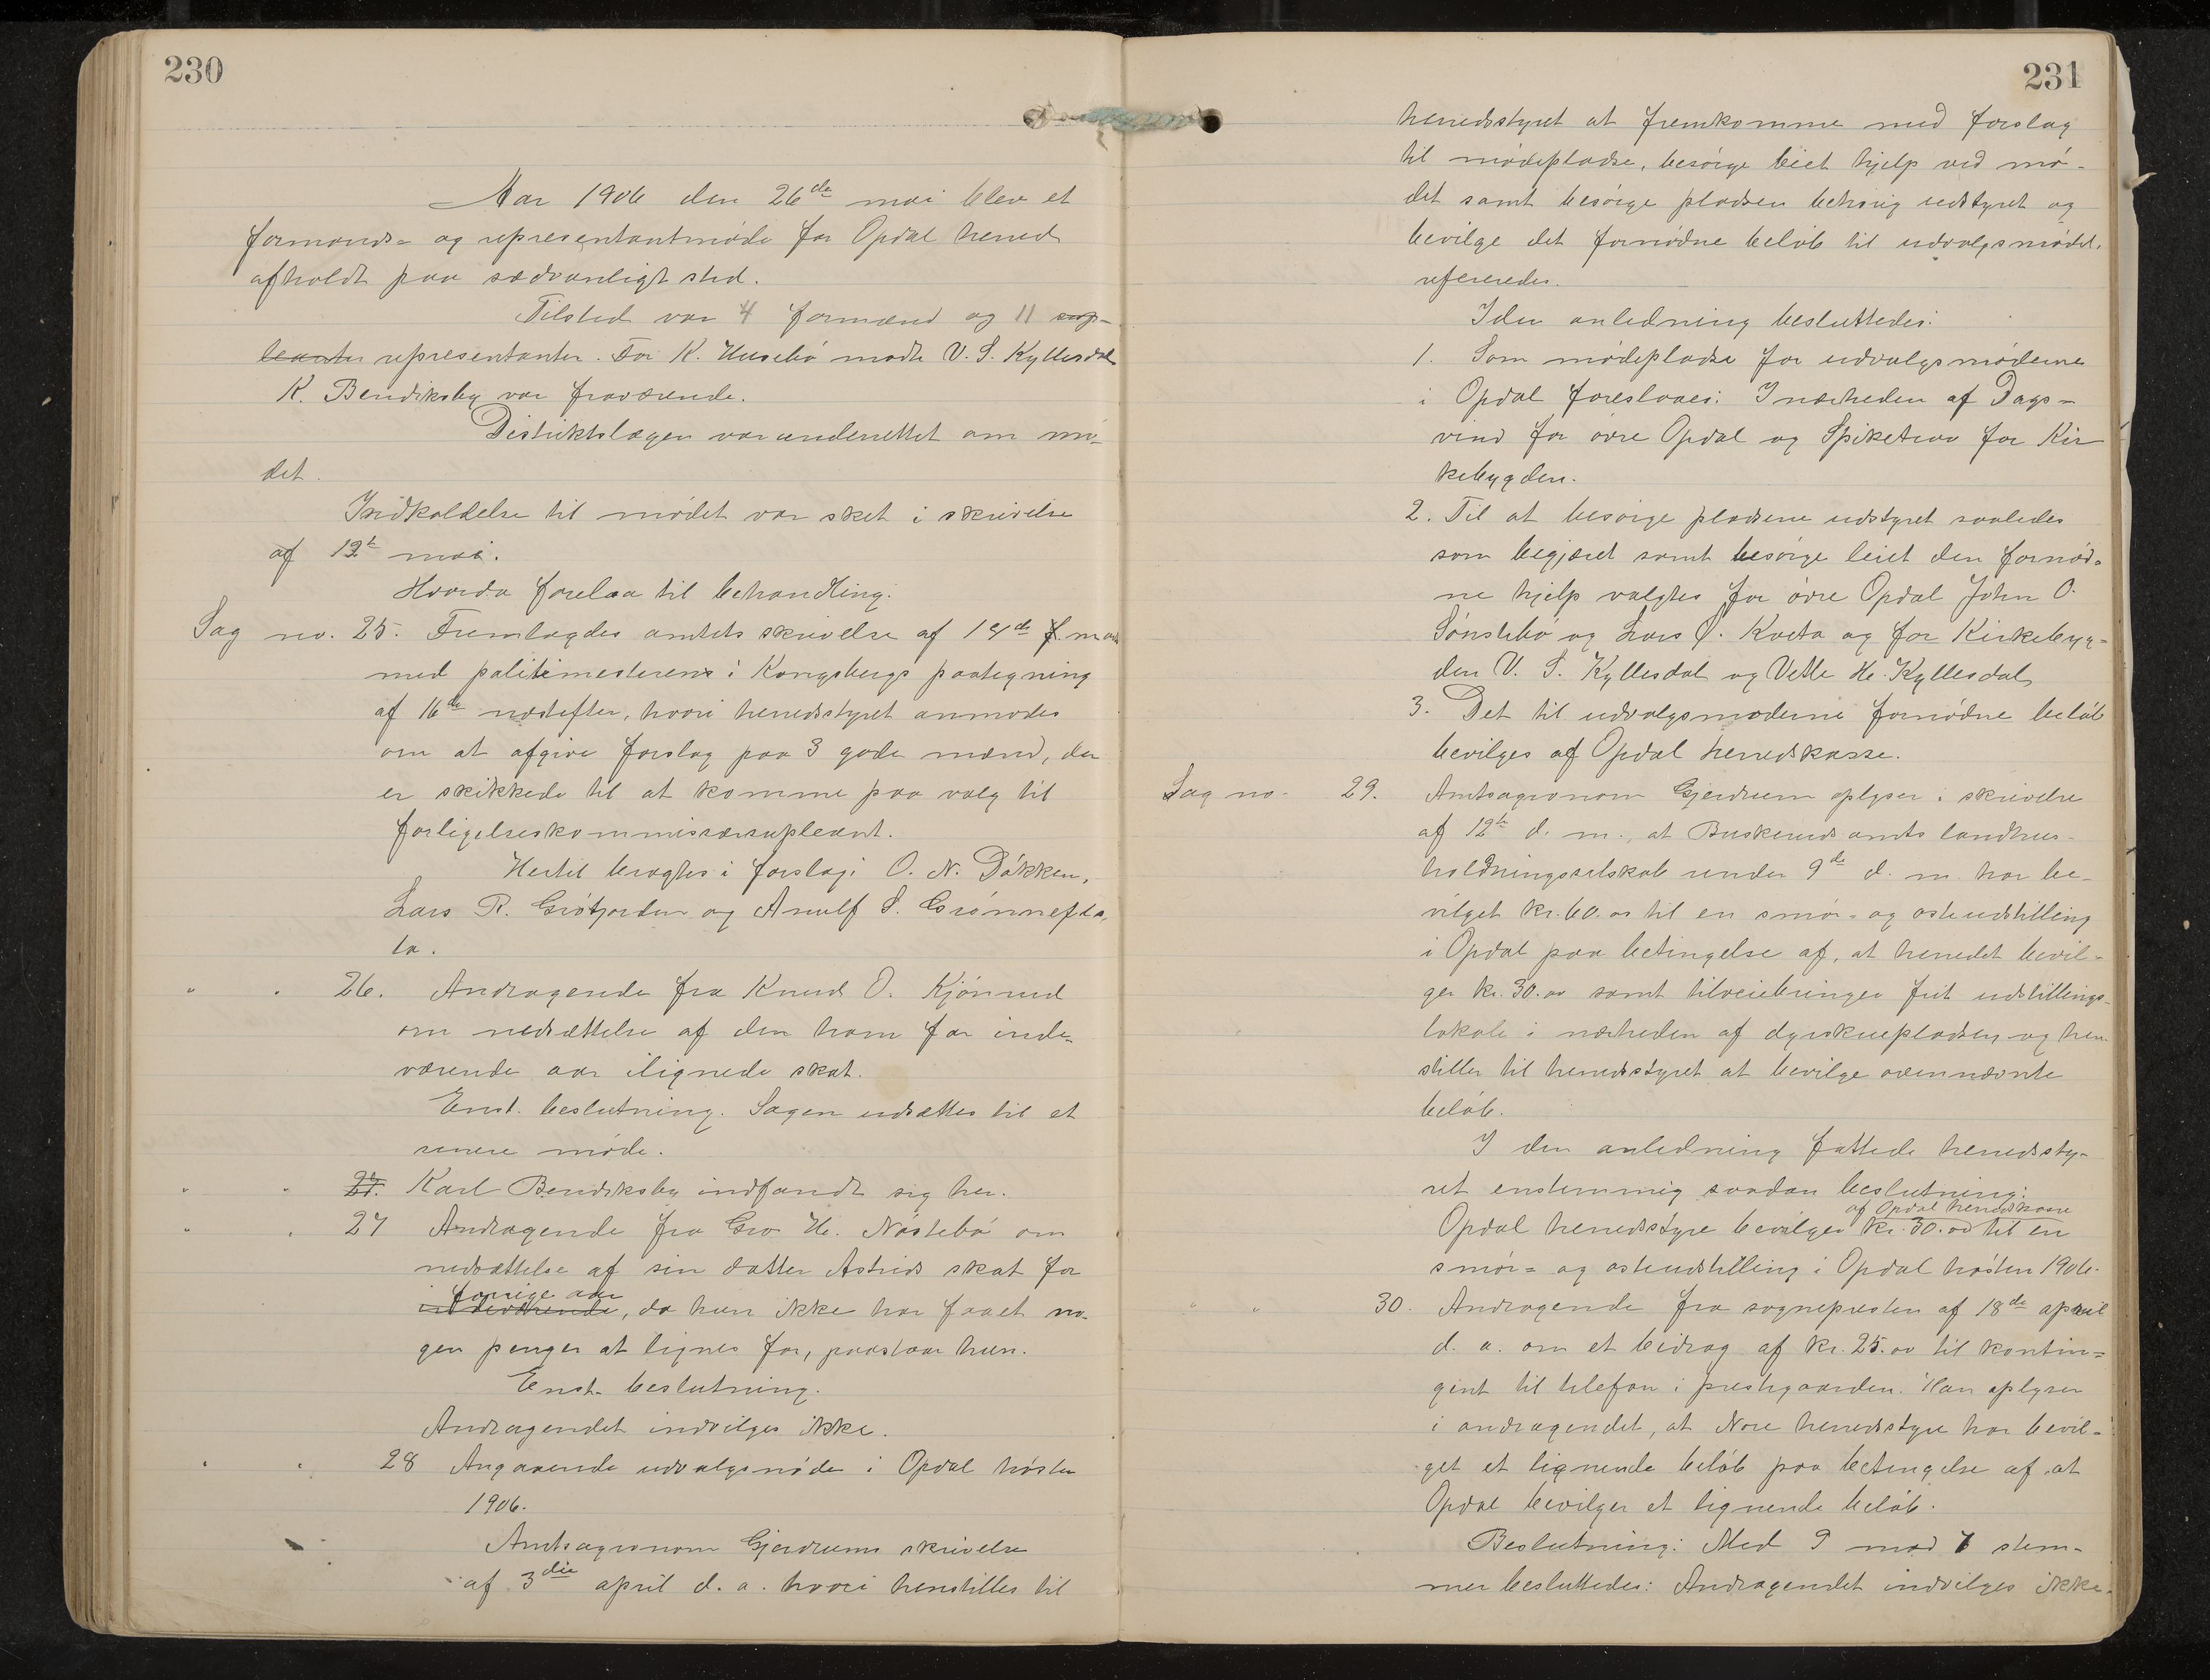 230
Aar 1906 den 26de mai blev et
formands- og representantmøde for Opdal herred
afholdt paa sædvanligt sted.
Tilsted var 4 formænd og 11 sup-
leanter representanter. For K. Husebö mødte V. S. Kyllesdal
K. Bendiksby var fraværende.
Distriktslægen var underrettet om mö-
det.
Indkaldelse til mödet var sket i skrivelse
af 12te mai.
Hvorda forelaa til behandling.
Sag no. 25. Fremlagdes amtets skrivelse af 14de f. mai
med politimesteren i Kongsbergs paategning
af 16de næstefter, hvori herredsstyret anmodes
om at afgive forslag paa 3 gode mænd, der
er skikkede til at komme paa valg til
forligelseskommissærsupleant.
Hertil bragtes i forslag: O. N. Dökken,
Lars R. Grötjorden og Arnulf S. Grönnefla-
ta.
" " 26. Andragende fra Knud O. Kjönnud
om nedsættelse af den ham for inde-
værende aar ilignede skat.
Enst. beslutning. Sagen udsættes til et
senere møde.
" " 27. Karl Bendiksby indfandt sig her.
" " 27 Andragende fra Gro H. Nöstebö om
nedsættelse af sin datter Astrids skat for
forrige aar
indeværende, da hun ikke har faaet no-
gen penger at lignes for, paastaar hun.
Enst. beslutning.
Andragendet indvilges ikke.
" " 28 Angaaende udvalgsmøde i Opdal hösten
1906.
Amtsagronom Gjerdrums skrivelse
af 3die april d. a. hvori henstilles til
231
herredsstyret at fremkomme med forslag
til mödepladse, besörge leiet hjelp ved mö-
det samt besörge pladsen behörig udstyret og
bevilge det fornödne belöb til udvalgsmödet,
refereredes.
I den anledning besluttedes:
1. Som mödepladse for udvalgsmöderne
i Opdal foreslaaes: I nærheden af Dags-
vind for övre Opdal og Spiketrav for Kir
kebygden.
2. Til at besörge pladsene udstyret saaledes
som begjæret samt besörge leiet den fornöd-
ne hjelp valgtes for övre Opdal John O.
Sönstebö og Lars O. Kvota og for Kirkebyg-
den V. S. Kyllesdal og Vetle H. Kyllesdal
3. Det til udvalgsmøderne fornödne belöb
bevilges af Opdal herredskasse.
Sag no. 29. Amtsagronom Gjerdrum oplyser i skrivelse
af 12te d. m., at Buskeruds amts landhus-
holdningsselskab under 9de d. m. har be-
vilget kr. 60.00 til en smör- og osteudstilling
i Opdal paa betingelse af, at herredet bevil-
ger kr. 30.00 samt tilveiebringer frit udstillings-
lokale i nærheden af dyrskuepladsen, og hen
stiller til herredsstyret at bevilge ovennævnte
belöb.
I den anledning fattede herredssty-
ret enstemmig saadan beslutning:
af Opdal herredskasse
Opdal herredsstyre bevilger kr. 30.00 til en
smör- og osteudstilling i Opdal hösten 1906.
" " 30. Andragende fra sognepresten af 18de april
d. a. om et bidrag af kr. 25.00 til kontin-
gent til telefon i prestegaarden. Han oplyser
i andragendet, at Nore herredsstyre har bevil-
get et lignende belöb paa betingelse af, at
Opdal bevilger et lignende belöb.
Beslutning: Med 9 mod 7 stem-
mer besluttedes: Andragendet indvilges ikke.